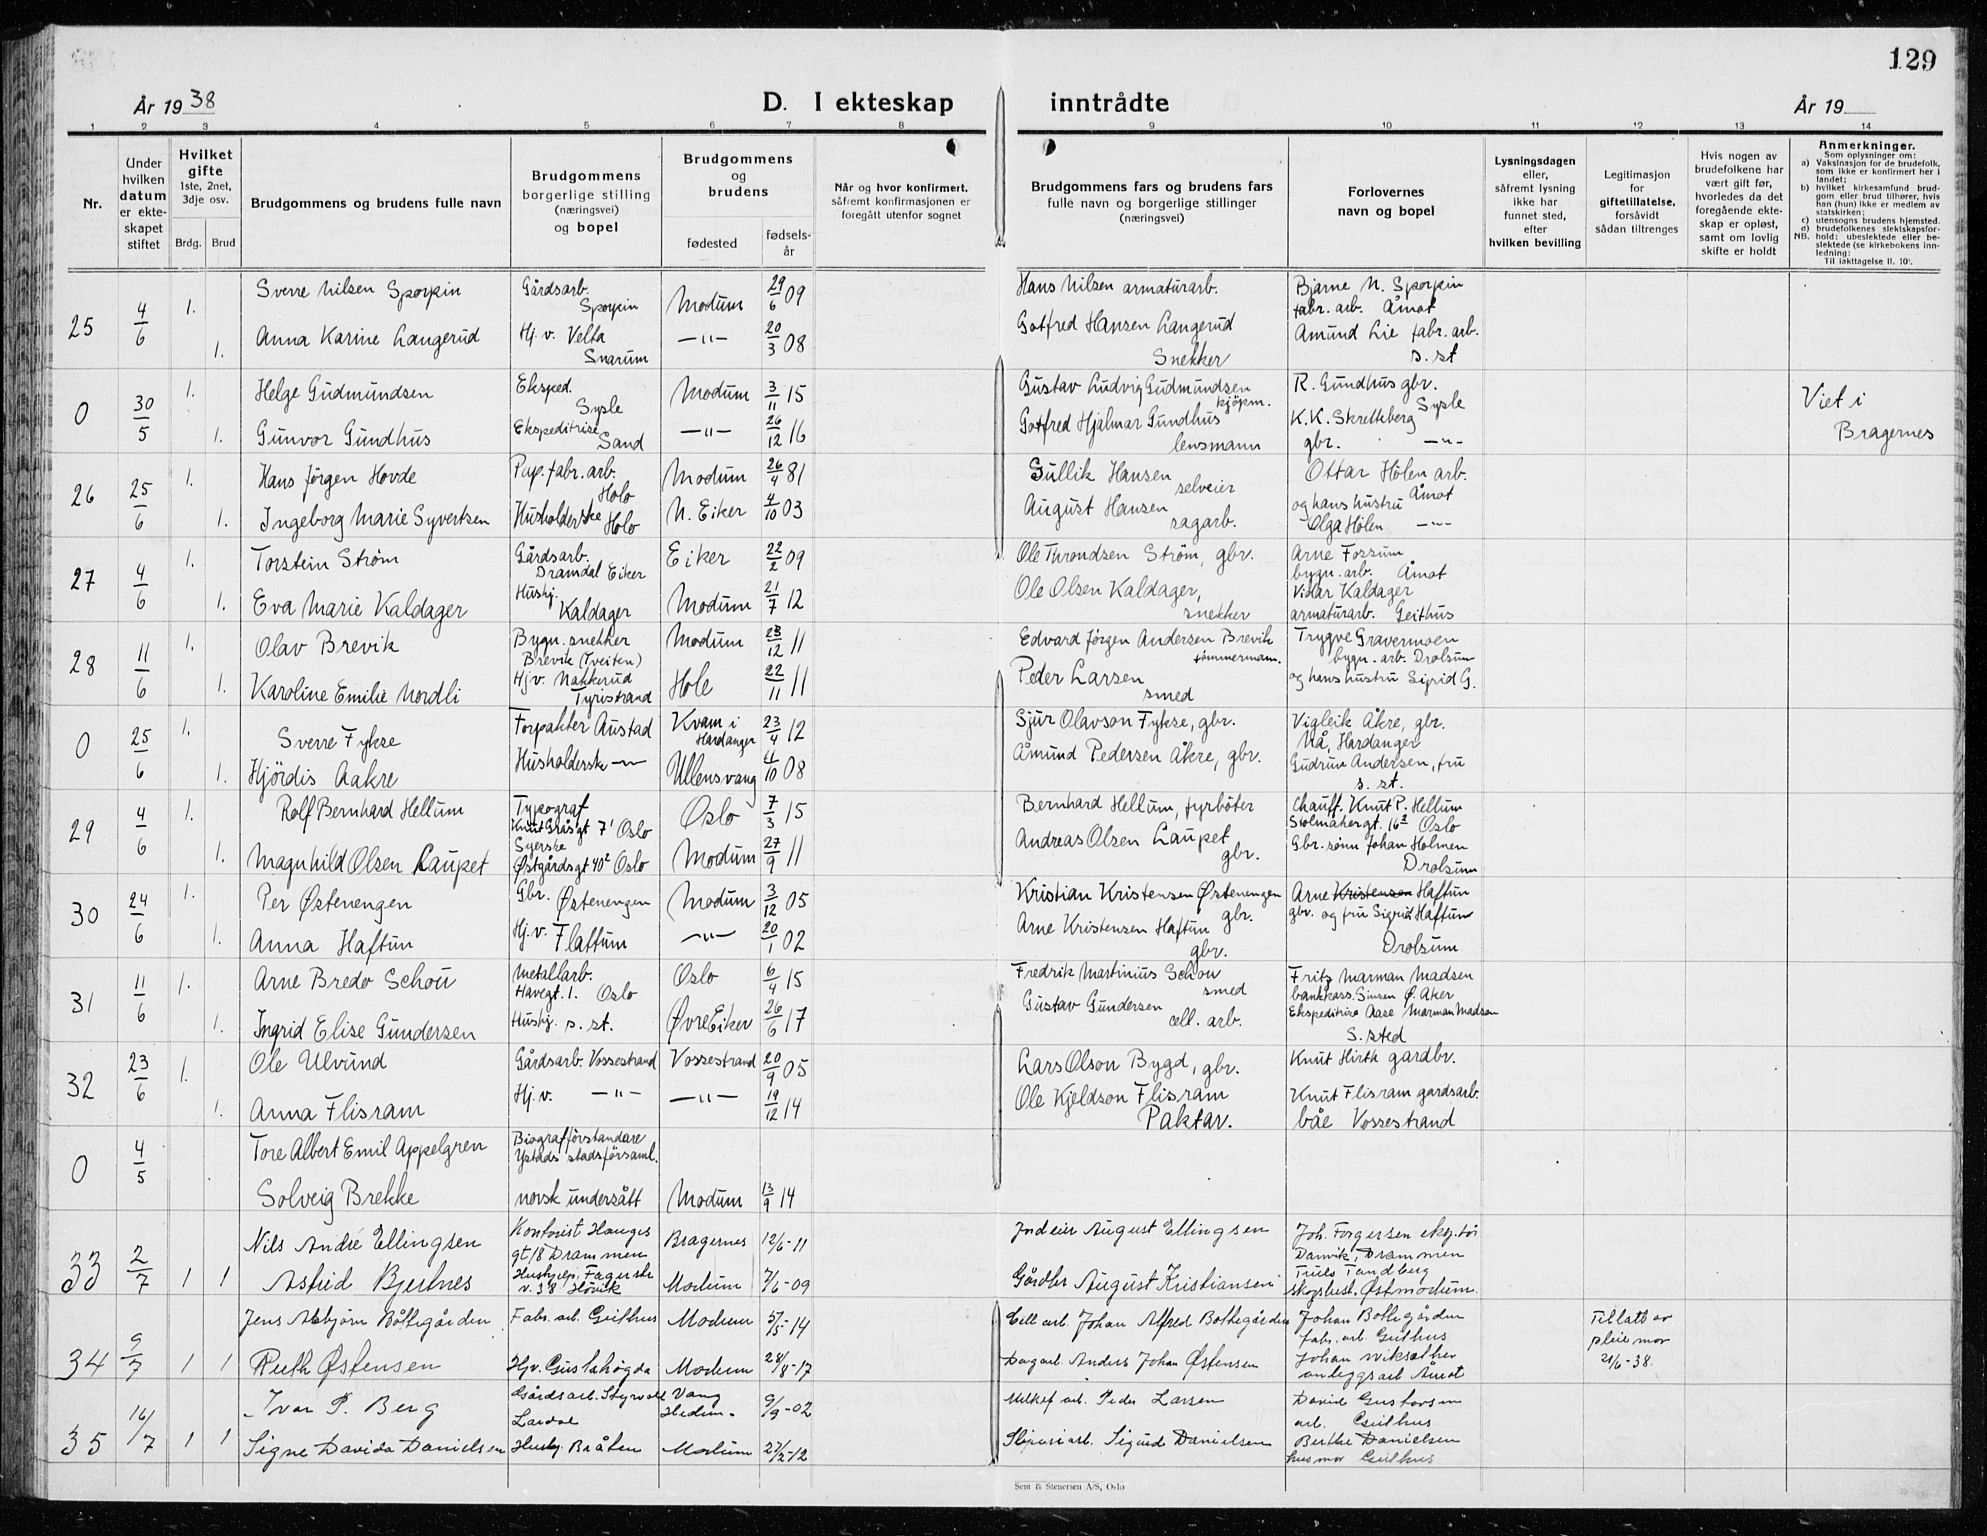 129
År 1938
D. I ekteskap inntrådte
År 19
1 2 3 4 5 6 7 8 9 10 11 12 13 14
Nr.
Under hvilken datum er ekteskapet stiftet
Hvilket gifte
1ste, 2net, 3dje osv.
Brdg. Brud
Brudgommens og brudens fulle navn
Brudgommens borgerlige stilling (næringsvei) og bopel
Brudgommens og brudens
fødested
fødselsår
Når og hvor konfirmert, såfremt konfirmasjonen er foregått utenfor sognet
Brudgommens fars og brudens fars fulle navn og borgerlige stillinger (næringsvei)
Forlovernes navn og bopel
Lysningsdagen eller, såfremt lysning ikke har funnet sted, efter hvilken bevilling
Legitimasjon for giftetillatelse, forsåvidt sådan tiltrenges
Hvis nogen av brudefolkene har vært gift før, hvorledes da det foregående ekteskap er opløst, samt om lovlig skifte er holdt
Anmerkninger.
Som oplysninger om:
a) Vaksinasjon for de brudefolk, som ikke er konfirmert her i landet;
b) hvilket kirkesamfund brudgom eller brud tilhører, hvis han (hun) ikke er medlem av statskirken;
c) utensogns brudens hjemsted.
d) brudefolkenes slektskapsforhold: ubeslektede eller beslektede (se kirkebokens innledning:
NB. Til iakttagelse II. 10).
25 4/6 1. Sverre Nilsen Spørpin Gårdsarb. Spørpin Modum 29/6 09 Hans Nilsen armaturarb. Bjarne N. Spørpin fabr. arb. Åmot
1. Anna Karine Langerud Hj. v. Velta Snarum —"— 20/3 08 Gotfred Hansen Langerud Snekker Amund Lie fabr. arb. s. st
0 30/5 1. Helge Gudmundsen Eksped. Sysle Modum 3/11 15 Gustav Ludvig Gudmundsen kjöpm. R. Gundhus gbr. Sysle Viet i Bragernes
1. Gunvor Gundhus Ekspeditrise Sand —"— 26/12 16 Gotfred Hjalmar Gundhus lensmann K.K. Skretteberg gbr. —"—
26 25/6 1. Hans Jørgen Hovde Pap. fabr. arb. Holo Modum 26/4 81 Gullik Hansen selveier Ottar Hölen arb. Åmot
1. Ingeborg Marie Syvertsen Husholderske Holo N. Eiker 4/10 03 August Hansen sagarb. og hans hustru Olga Hölen —"—
27 4/6 1. Torstein Strøm Gårdsarb. Dramdal Eiker Eiker 22/2 09 Ole Throndsen Strøm, gbr. Arne Fossum bygn. arb. Åmot
1. Eva Marie Kaldager Hushj. Kaldager Modum 21/7 12 Ole Olsen Kaldager, snekker Vidar Kaldager armaturarb. Geithus
28 11/6 1. Olav Brevik Bygn. snekker Brevik (Tveiten) Modum 23/12 11 Edvard Jörgen Andersen Brevik tømmermann. Trygve Gravermoen bygn. arb. Drolsum
1. Karoline Emilie Nordli Hj. v. Nakkerud Tyristrand Hole 22/11 11 Peder Larsen smed og hans hustru Sigrid G.
0 25/6 1. Sverre Fykse Forpakter Austad Kvam i Hardanger 23/4 12 Sjur Olavson Fykse, gbr. Vigleik Åkre, gbr. Nå, Hardanger
1. Hjördis Aakre Husholderske —"— Ullensvang 4/10 08 Åmund Pedersen Åkre, gbr. Gudrun Andersen, fru s. st.
29 4/6 1. Rolf Bernhard Hellum Typograf Knut Gråsgt 7' Oslo Oslo 7/3 15 Bernhard Hellum, fyrböter Chauff. Knut P. Hellum Stolmakergt. 16² Oslo
1. Magnhild Olsen Laupet Syerske Østgårdsgt 40² Oslo Modum 27/9 11 Andreas Olsen Laupet gbr. Gbr. sønn Johan Holmen Drolsum
30 24/6 1. Per Østenengen Gbr. Østenengen Modum 3/12 05 Kristian Kristensen Østenengen gbr. Arne Kristensen Haftun
1. Anna Haftun Hj. v. Flattum —"— 20/1 02 Arne Kristensen Haftun gbr. gbr. og fru Sigrid Haftun Drolsum
31 11/6 1. Arne Bredo Schou Metallarb. Havegt. 1. Oslo Oslo 6/4 15 Fredrik Martinius Schou smed Fritz Marman Madsen bankkass. Sinsen Ø. Aker
1. Ingrid Elise Gundersen Hushj. s. st. Øvre Eiker 26/6 17 Gustav Gundersen cell. arb. Ekspeditrise Aase Marman Madsen S. sted
32 23/6 1. Ole Ulvund Gårdsarb. Vossestrand Vossestrand 20/9 05 Lars Olson Bygd, gbr. Knut Hirth gardbr.
1. Anna Flisram Hj. v. —"— —"— 19/12 14 Ole Kjeldson Flisram Paktar. Knut Flisram gardsarb. båe Vossestrand
0 4/5 Tore Albert Emil Appelgren Biografförstandare Ystads stadsförsaml.
Solveig Brekke norsk undersått Modum 13/9 14
33 2/7 1 1 Nils André Ellingsen Kontorist Hauges gt 18 Drammen Bragernes 12/6-11 Jordeier August Ellingsen Joh. Forgersen eksp.tør Danvik, Drammen
Astrid Bjertnes Hushjelp. Fagerstr v. 38 Hövik Modum 7/6-09 Gårdbr August Kristiansen Truls Tandberg skogsbest. Østmodum.
34 9/7 1 1 Jens Asbjørn Böttegården Fabr. arb. Geithus Modum 5/5-14 Cell arb. Johan Alfred Bottegården Johan Bottegården fabr. arb Geithus Tillatt av pleiemor 21/6-38.
Ruth Østensen Hjv. Gustahøgda Modum 28/8-17 Dagarb. Anders Johan Østensen Johan Wiksæther anleggsarb Åmot
35 16/7 1 1 Ivar P. Berg Gårdsarb. Styrvoll Lardal Vang Hedm. 9/9-02 Melkef arb. Peder Larsen David Gustavsen arb. Geithus
Signe Davida Danielsen Hushj. Bråten Modum 27/2-12 Sliperiarb. Sigurd Danielsen Berthe Danielsen husmor Geithus
Sem & Stenersen A/S, Oslo